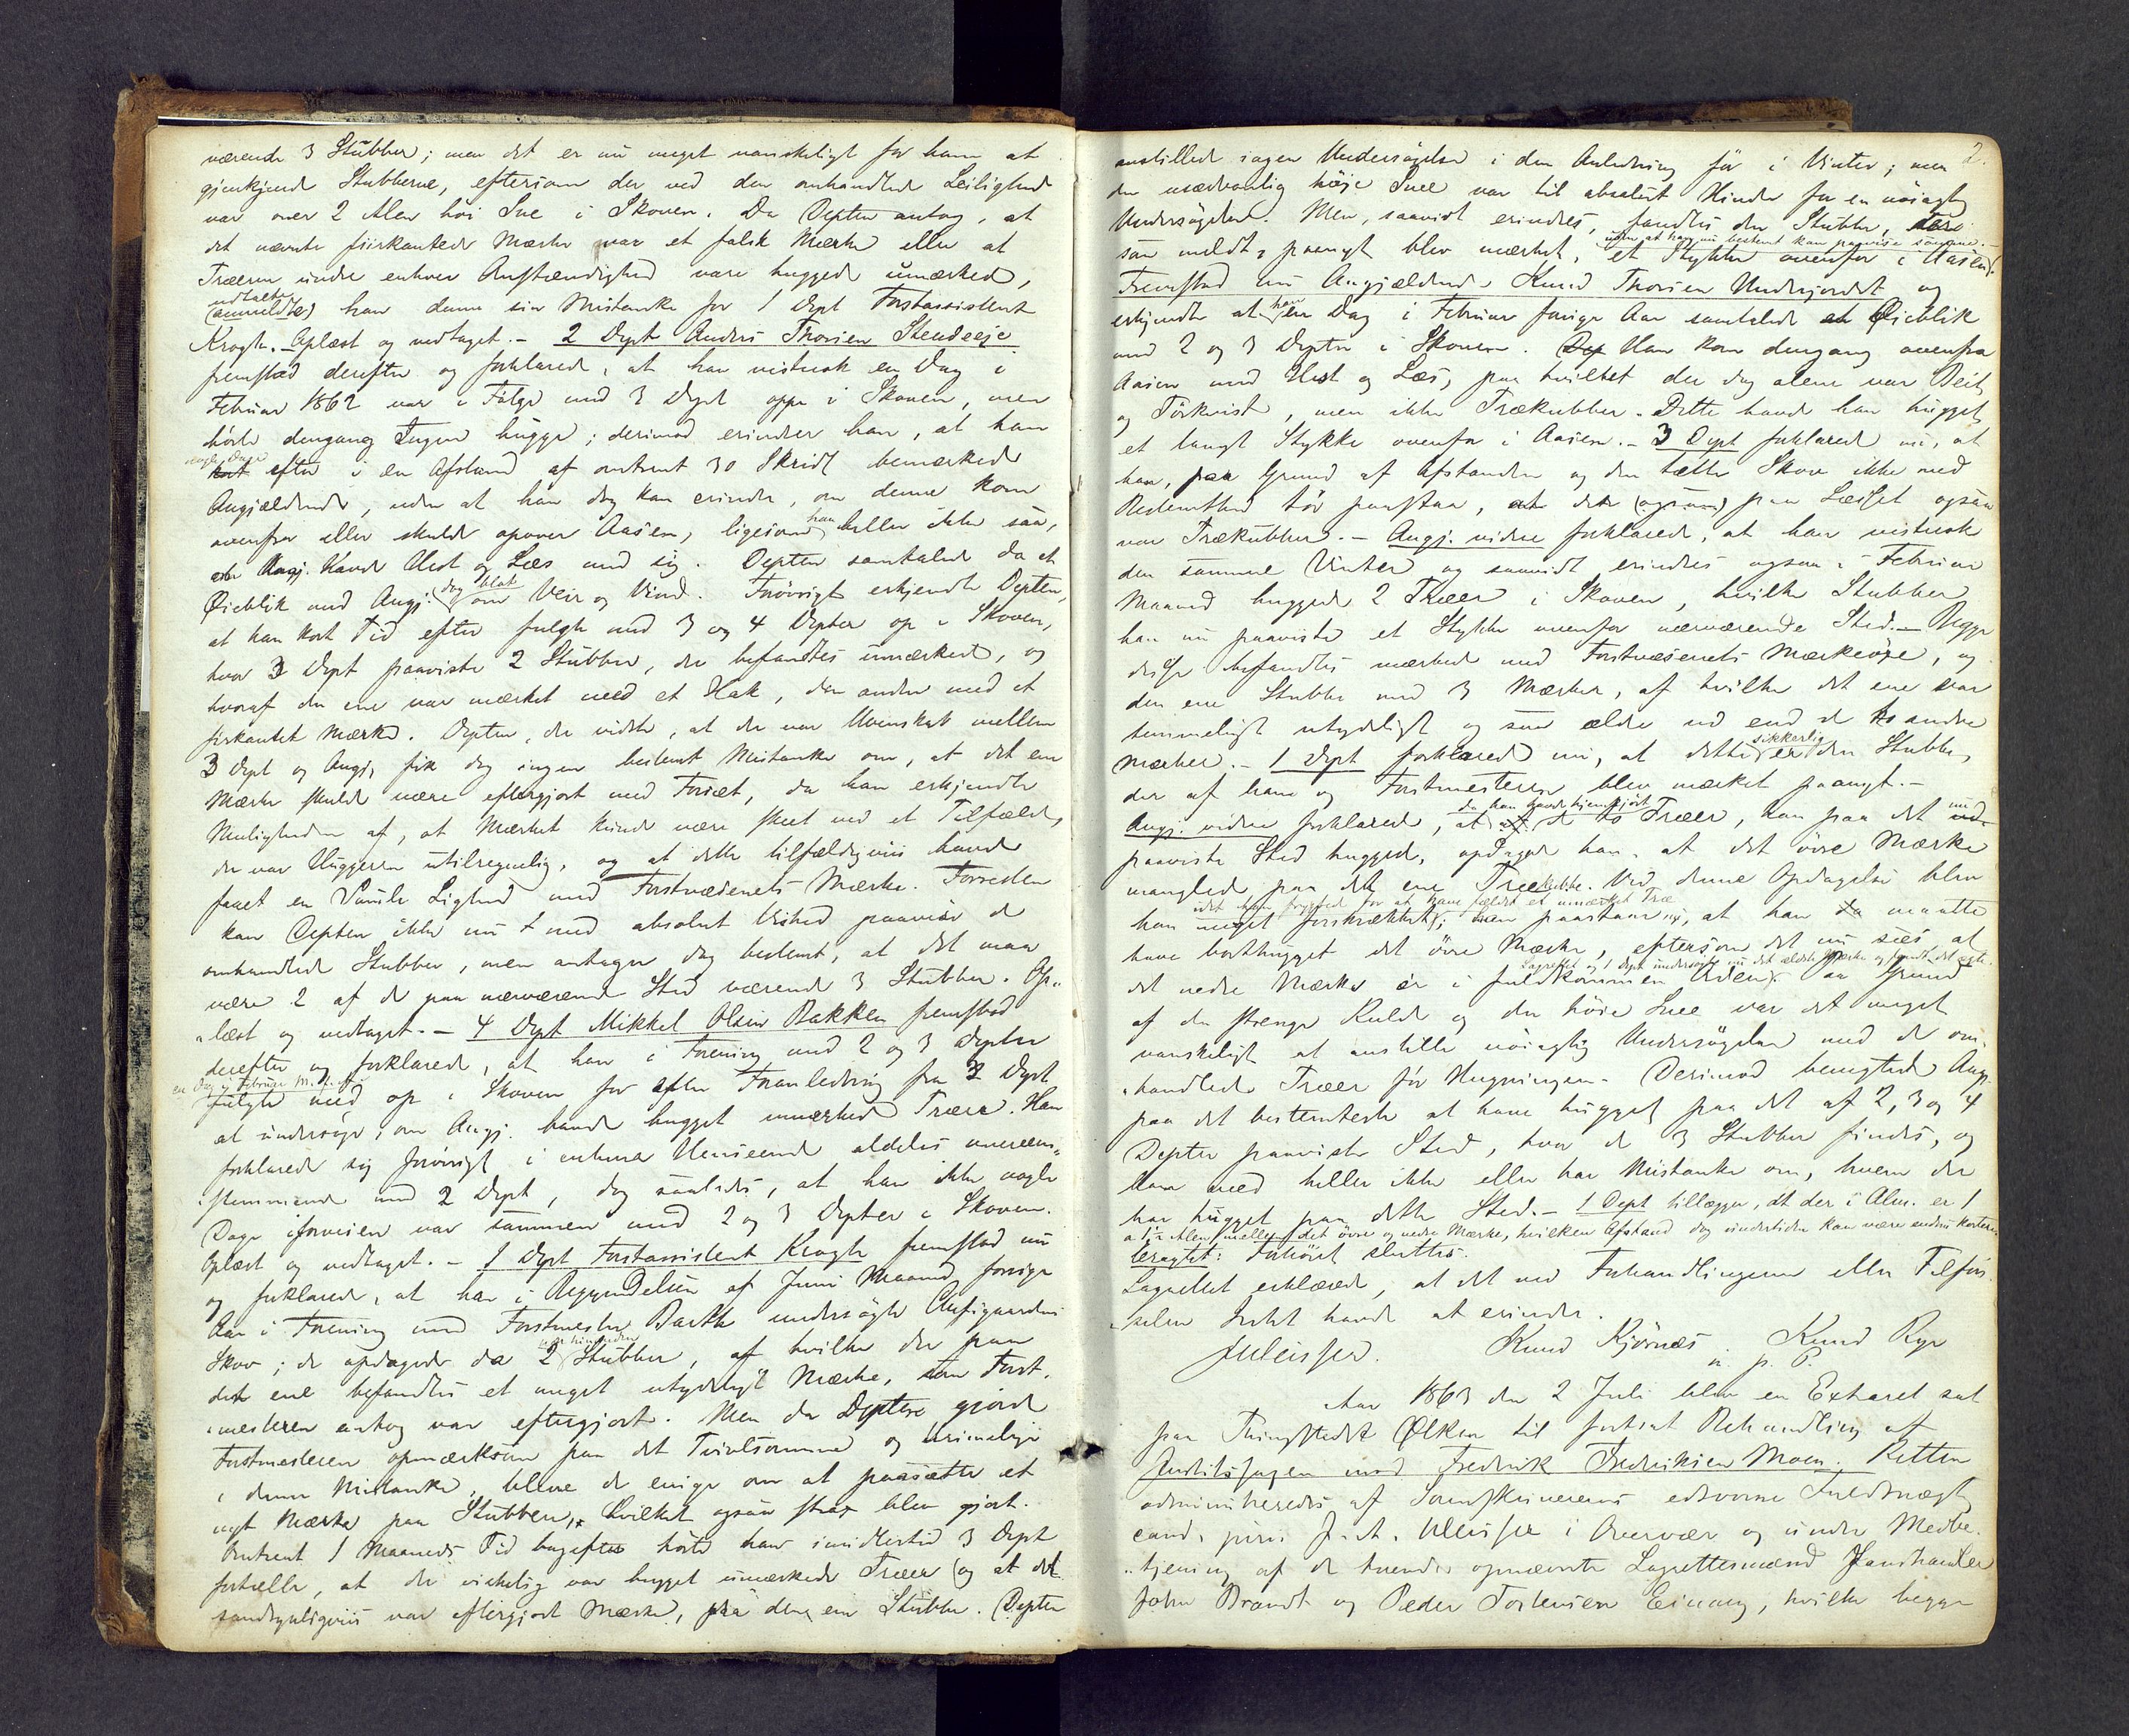 værende 3 Stubber; men det er nu meget vanskeligt for ham at
gjenkjende Stubberne, eftersom der ved den omhandlede Leilighed
var over 2 Alen høi Sne i Skoven. Da Depten antog, at
det nævnte fiirkantede Mærke var et falsk Mærke eller at
Træerne under enhver Omstændighed vare huggede umærkede,
udtalte
(anmeldte) han denne sin Mistanke for 1 Dept Forstassistent
Krogh. – Oplæst og vedtaget. – 2 Dept Anders Thorsen Stendeeje
fremstod derefter og forklarede, at han vistnok en Dag i
Februar 1862 var i Følge med 3 Dept oppe i Skoven, men
hørte dengang Ingen hugge; derimod erindrer han, at han
nogle Dage
kort efter i en Afstand af omtrent 30 Skridt bemærkede
Angjældende, uden at han dog kan erindre, om denne kom
ovenfra eller skulde opover Aasen, ligesom han heller ikke saa,
om Angj. havde Hest og Læs med sig. Depten samtalede da et
Øieblik med Angj. dog blot om Veir og Vind. Forøvrigt erkjendte Depten,
at han kort Tid efter fulgte med 3 og 4 Depter op i Skoven,
hvor 3 Dept paaviste 2 Stubber, der befandtes umærkede, og
hvoraf den ene var mærket med et Hak, den anden med et
firkantet Mærke. Depten, der vidste, at der var Uvenskab mellem
3 Dept og Angj, fik dog ingen bestemt Mistanke om, at det ene
Mærke skulde være eftergjort med Forsæt, da han erkjendte
Muligheden af, at Mærket kunde være skeet ved et Tilfælde,
der var Huggeren utilregnelig, og at dette tilfældigviis havde
faaet en Smule Lighed med Forstvæsenets Mærke. Forresten
kan Depten ikke nu med absolut Vished paavise de
omhandlede Stubber, men antager dog bestemt, at det maa
være 2 af de paa nærværende Sted værende 3 Stubber. Op-
læst og vedtaget. – 4 Dept Mikkel Olsen Bakken fremstod
derefter og forklarede, at han i Forening med 2 og 3 Depter
en Dag i Februar
fulgte med op i Skoven for efter Foranledning fra 3 Dept
at undersøge, om Angj. havde hugget umærkede Træer. Han
forklarede sig forøvrigt i enhver Henseende aldeles overeens-
stemmende med 2 Dept, dog saaledes, at han ikke nogle
Dage iforveien var sammen med 2 og 3 Depter i Skoven.
Oplæst og vedtaget. – 1 Dept Forstassistent Krogh fremstod nu
og forklarede, at han i Begyndelsen af Juni Maaned forrige
Aar i Forening med Forstmester Barth undersøgte
Skov; de opdagede da 2 Stubber, af hvilke der paa
den ene befandtes et meget utydeligt Mærke, som Forst-
mesteren antog var eftergjort. Men da Depten gjorde
Forstmesteren opmærksom paa det Tvivlsomme og urimelige
i denne Mistanke, bleve de enige om at paasætte et
nyt Mærke paa Stubben, hvilket ogsaa strax blev gjort.
Omtrent 1 Maaneds Tid bagefter hørte han imidlertid 3 Dept
fortælle, at der virkelig var hugget umærkede Træer (og at det
sandsynligviis var eftergjort Mærke, paa den ene Stubbe. Depten
2.
anstillede ingen Undersøgelse i den Anledning før i Vinter; men
den usædvanlig høie Snee var til absolut Hinder for en nøiagtig
Undersøgelse. Men, saavidt erindres, fandtes den Stubbe, der
uden at han nu bestemt kan paavise samme.
som meldt, paanyt blev mærket, et Stykke ovenfor i Aasen.
Fremstod nu Angjældende Knud Thorsen Underjordet og
erkjendte at han en Dag i Februar forrige Aar samtalede et Øieblik
med 2 og 3 Depter i Skoven. Han kom dengang ovenfra
Aasen med Hest og Læs, paa hvilket der dog alene var Beit
og Tørkvist, men ikke Trækubber. Dette havde han hugget
et langt Stykke ovenfor i Aasen. – 3 Dept forklarede nu, at
han, paa Grund af Afstanden og den tætte Skov ikke med
Bestemthed tør paastaa, at der (ogsaa) paa Læsset ogsaa
var Trækubber. – Angj. videre forklarede, at han vistnok
den samme Vinter og saavidt erindres ogsaa i Februar
Maaned huggede 2 Træer i Skoven, hvilke Stubber
han nu paaviste et Stykke ovenfor nærværende Sted. – Begge
disse befandtes mærkede med Forstvæsenets Mærkeøxe, og
den ene Stubbe med 3 Mærker, af hvilke det ene var
temmeligt utydeligt og saa ældre ud end de to andre
Mærker. – 1 Dept forklarede nu, at dette sikkerlig er den Stubbe,
der af ham og Forstmesteren blev mærket paanyt. –
da han havde hjemkjørt
Angj. videre forklarede, at de to Træer, han paa det nu
paaviste Sted huggede, opdaget han, at det øvre Mærke
manglede paa den ene Trækubbe. Ved denne Opdagelse blev
idet han frygtede for at have fældet et umærket Træ
han meget forskrækket; men paastaar nu, at han da maatte
have borthugget det øvre Mærke, eftersom det nu sees at
Lagrettet og 1 Dept undersøgte nu det ældste Mærke og fandt det ægte.
det nedre Mærke er i fuldkommen Orden. Paa Grund
af den strenge Kulde og den høie Snee var det meget
vanskeligt at anstille nøiagtig Undersøgelse med de om-
handlede Træer før Hugningen. Derimod benegtede Angj.
paa det bestemteste at have hugget paa det af 2, 3 og 4
Depter paaviste Sted, hvor de 3 Stubber findes, og
Han veed heller ikke eller har Mistanke om, hvem der
har hugget paa dette Sted. – 1 Dept tillægger, at der i Alm. er 1
a 1½ Alen mellem det øvre og nedre Mærke, hvilken Afstand dog undertiden kan være endnu kortere.
Forhøret sluttes.
Lagrettet erklærede, at det ved Forhandlingerne eller Tilfør-
selen Intet havde at erindre.
Knud Kjörnæs. Knud Rye
m. p. P.
Aar 1863 den 2 Juli blev en Extraret sat
paa Thingstedet Ølken til fortsat Behandling af
Justitssagen mod Fredrik Fredriksen Moen. Retten
administreredes af Sorenskriverens edsvorne Fuldmægtig
cand. juris J. A. i og under Medbe-
tjening af de tvende opnævnte Lagrettesmænd Landhandler
John Brandt og Peder Torstensen Einang, hvilke begge